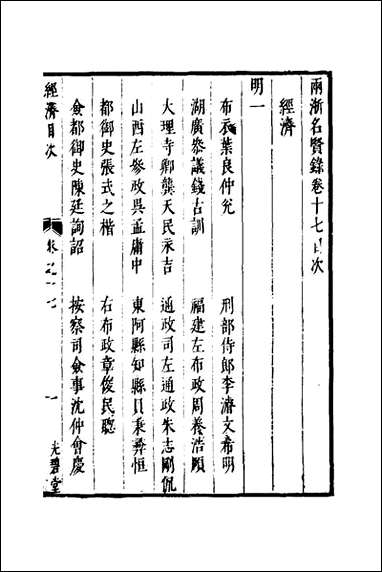 兩浙名賢錄卷十七目次
經濟
明一
布衣葉良仲兊
刑部侍郎李濬文希明
湖廣參議錢古訓
福建左布政周養浩頤
大理寺卿龔天民永吉
通政司左通政朱志剛侃
山西左參政吳孟庸中
東阿縣知縣貝秉彝恒
都御史張式之楷
右布政章俊民聰
僉都御史陳廷詢詔
按察司僉事沈仲會慶
經濟目次
卷之十七
一
光碧堂